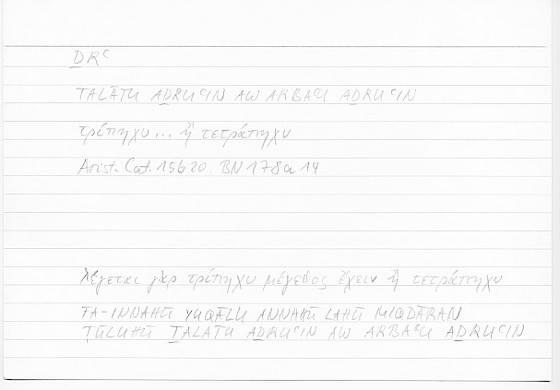 ḎRᶜ
TALĀṮU AḎRUᶜIN AW ARBAᶜU AḎRUᶜIN
τρίπηχυ... ἢ τετράπηχυ
Arist. Cat. 15b20, BN 178a 14
λέγεται γὰρ τρίπηχυ μέγεθος ἔχειν ἢ τετράπηχυ
FA-INNAHŪ YUQĀLU ANNAHŪ LAHŪ MIQDĀRAN
ṬŪLUHŪ ṮALĀṮU AḎRUᶜIN AW ARBAᶜU AḎRUᶜIN